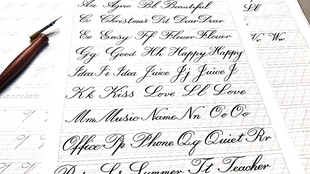 Aa Agree Bb Beautiful
Cc Christmas Dd Dear Dear
Ee Easy Ff Flower Flower
Gg Good Hh Happy Happy
Idea Ii Idea Juice Jj Juice J
Kk Kiss Love Ll Love
Mm Music Name Nn Oo Oo
Office Pp Phone Qq Quiet Rr
Ss Summer Tt Teacher
Ll
Vv Ww